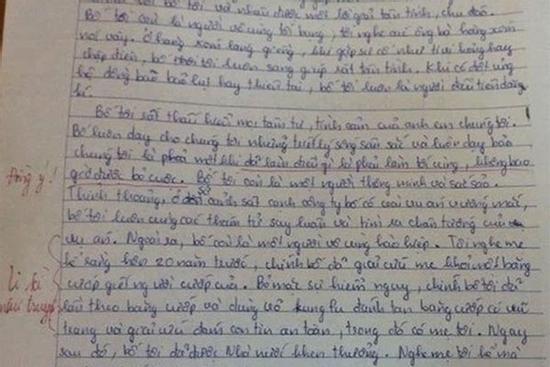 với bố tôi và nhận được một lời giải tận tình, chu đáo.
Bố tôi còn là người vô cùng tốt bụng, tôi nghe các ông bà hàng xóm
nói vậy. Ở hàng xóm láng giềng, khi gặp sự cố như tivi hỏng hay
chập điện, bố tôi luôn sang giúp rất tận tình. Khi có đợt ủng
hộ đồng bào bão lụt hay thiên tai, bố tôi luôn là người đầu tiên đăng
kí.
Bố tôi rất thấu hiểu mọi tâm tư, tình cảm của anh em chúng tôi.
Bố luôn dạy cho chúng tôi những triết lý sống sâu sắc và luôn dạy bảo
chúng tôi là phải một khi đã làm điều gì là phải làm tới cùng, không bao
giờ được bỏ cuộc. Bố tôi còn là một người thông minh và sắc sảo.
Đồng ý!
Thỉnh thoảng, ở sở cảnh sát cạnh công ty bố có cái vụ án vướng mắc,
bố tôi luôn cùng các thám tử suy luận và tìm ra chân tướng của
vụ án. Ngoài ra, bố còn là một người vô cùng hào hiệp. Tôi nghe mẹ
kể rằng hơn 20 năm trước, chính bố đã giải cứu mẹ khỏi một băng
cướp giết người cướp của. Bỏ mặc sự hiểm nguy, chính bố tôi đã
Li kì
như truyện
lần theo băng cướp và dùng võ kung fu đánh tan băng cướp có vũ
trang và giải cứu đám con tin an toàn, trong đó có mẹ tôi. Ngay
sau đó, bố tôi đã được Nhà nước khen thưởng. Nghe mẹ tôi kể mà